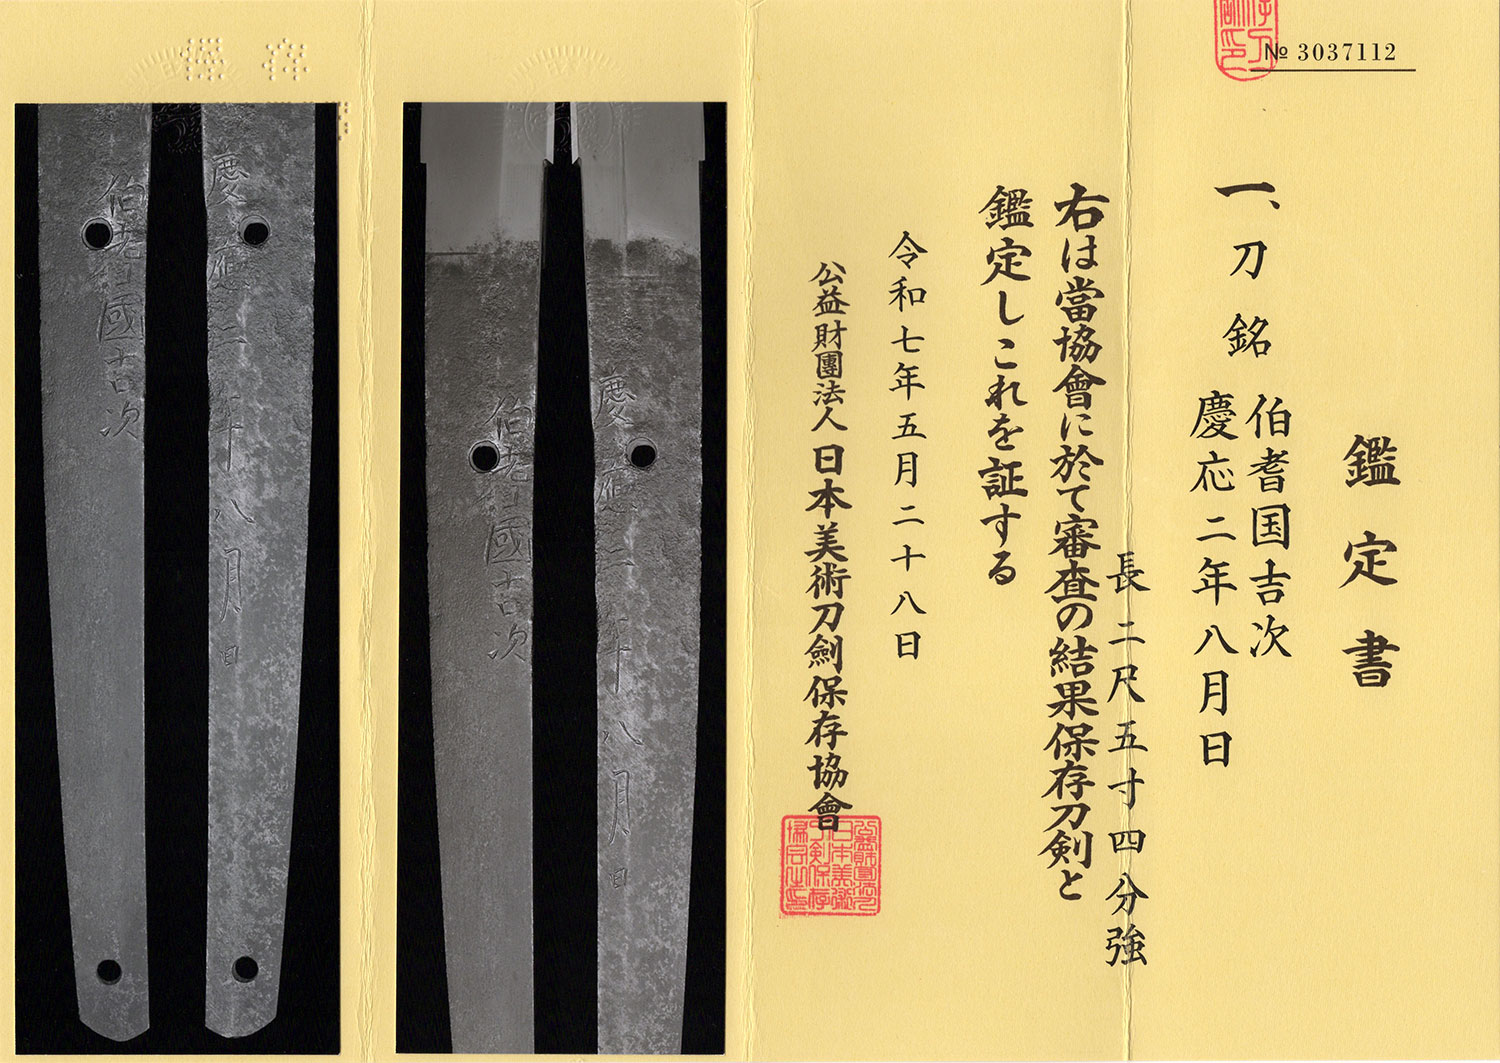 № 3037112
鑑定書
一、刀 銘 伯耆国吉次
慶応二年八月日
長 二尺五寸四分強
右は當協會に於て審査の結果保存刀剣と
鑑定しこれを証する
令和七年五月二十八日
公益財團法人日本美術刀劍保存協會
慶應二年八月日
伯耆國吉次
慶應二年八月日
伯耆國吉次
保存